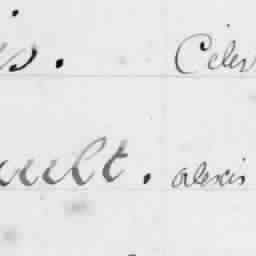 is. Celes
ault. alexis